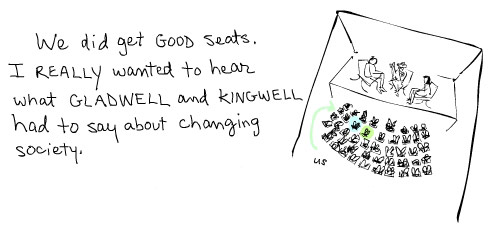 We did get GOOD seats.
I REALLY wanted to hear
what GLADWELL and KINGWELL
had to say about changing
society.
us